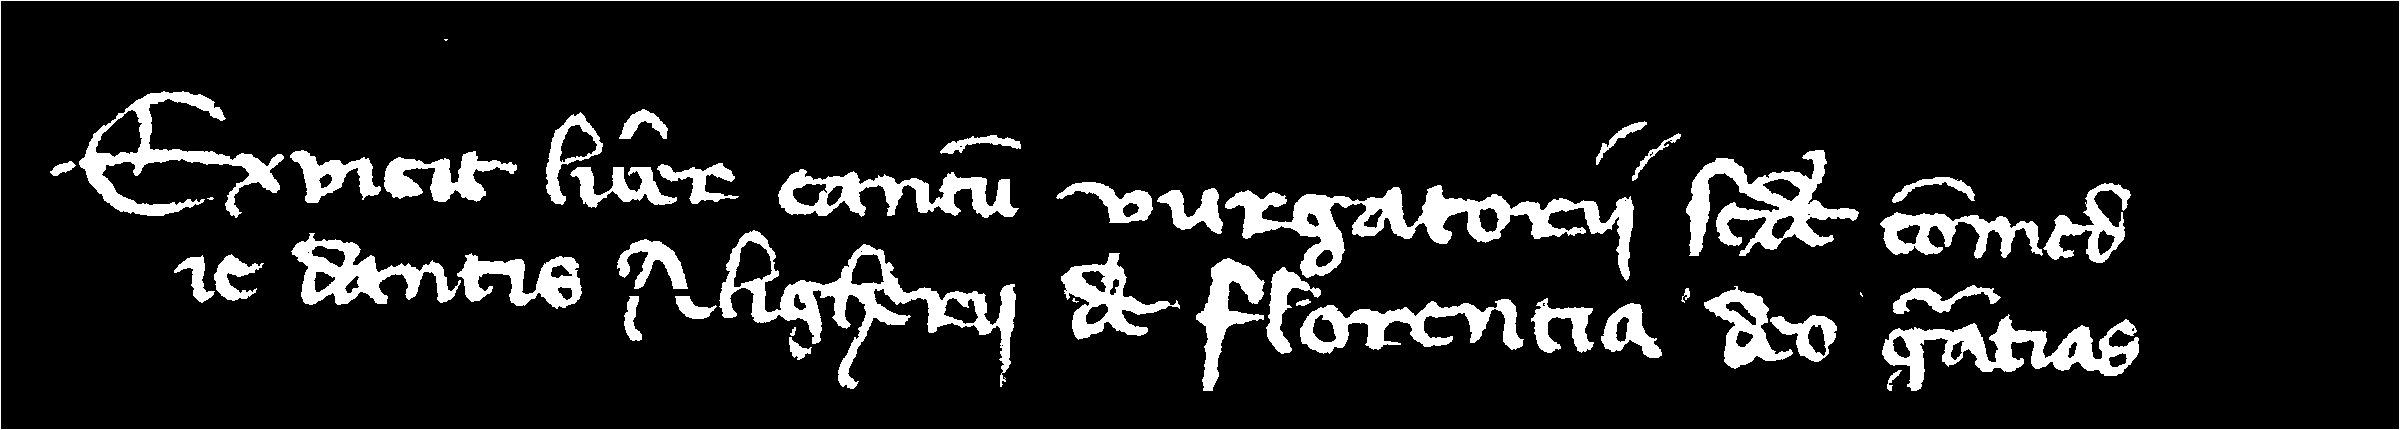 Expicit liber cantū purgatorij scde cōmed
ie dantis Aligherij de florentia deo gratias